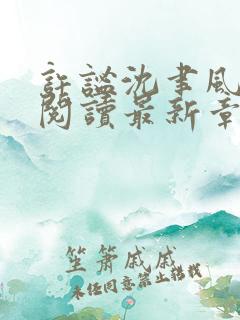 許謐沈聿風
閱讀最新章
笙簫戚戚
未經同意禁止搭載